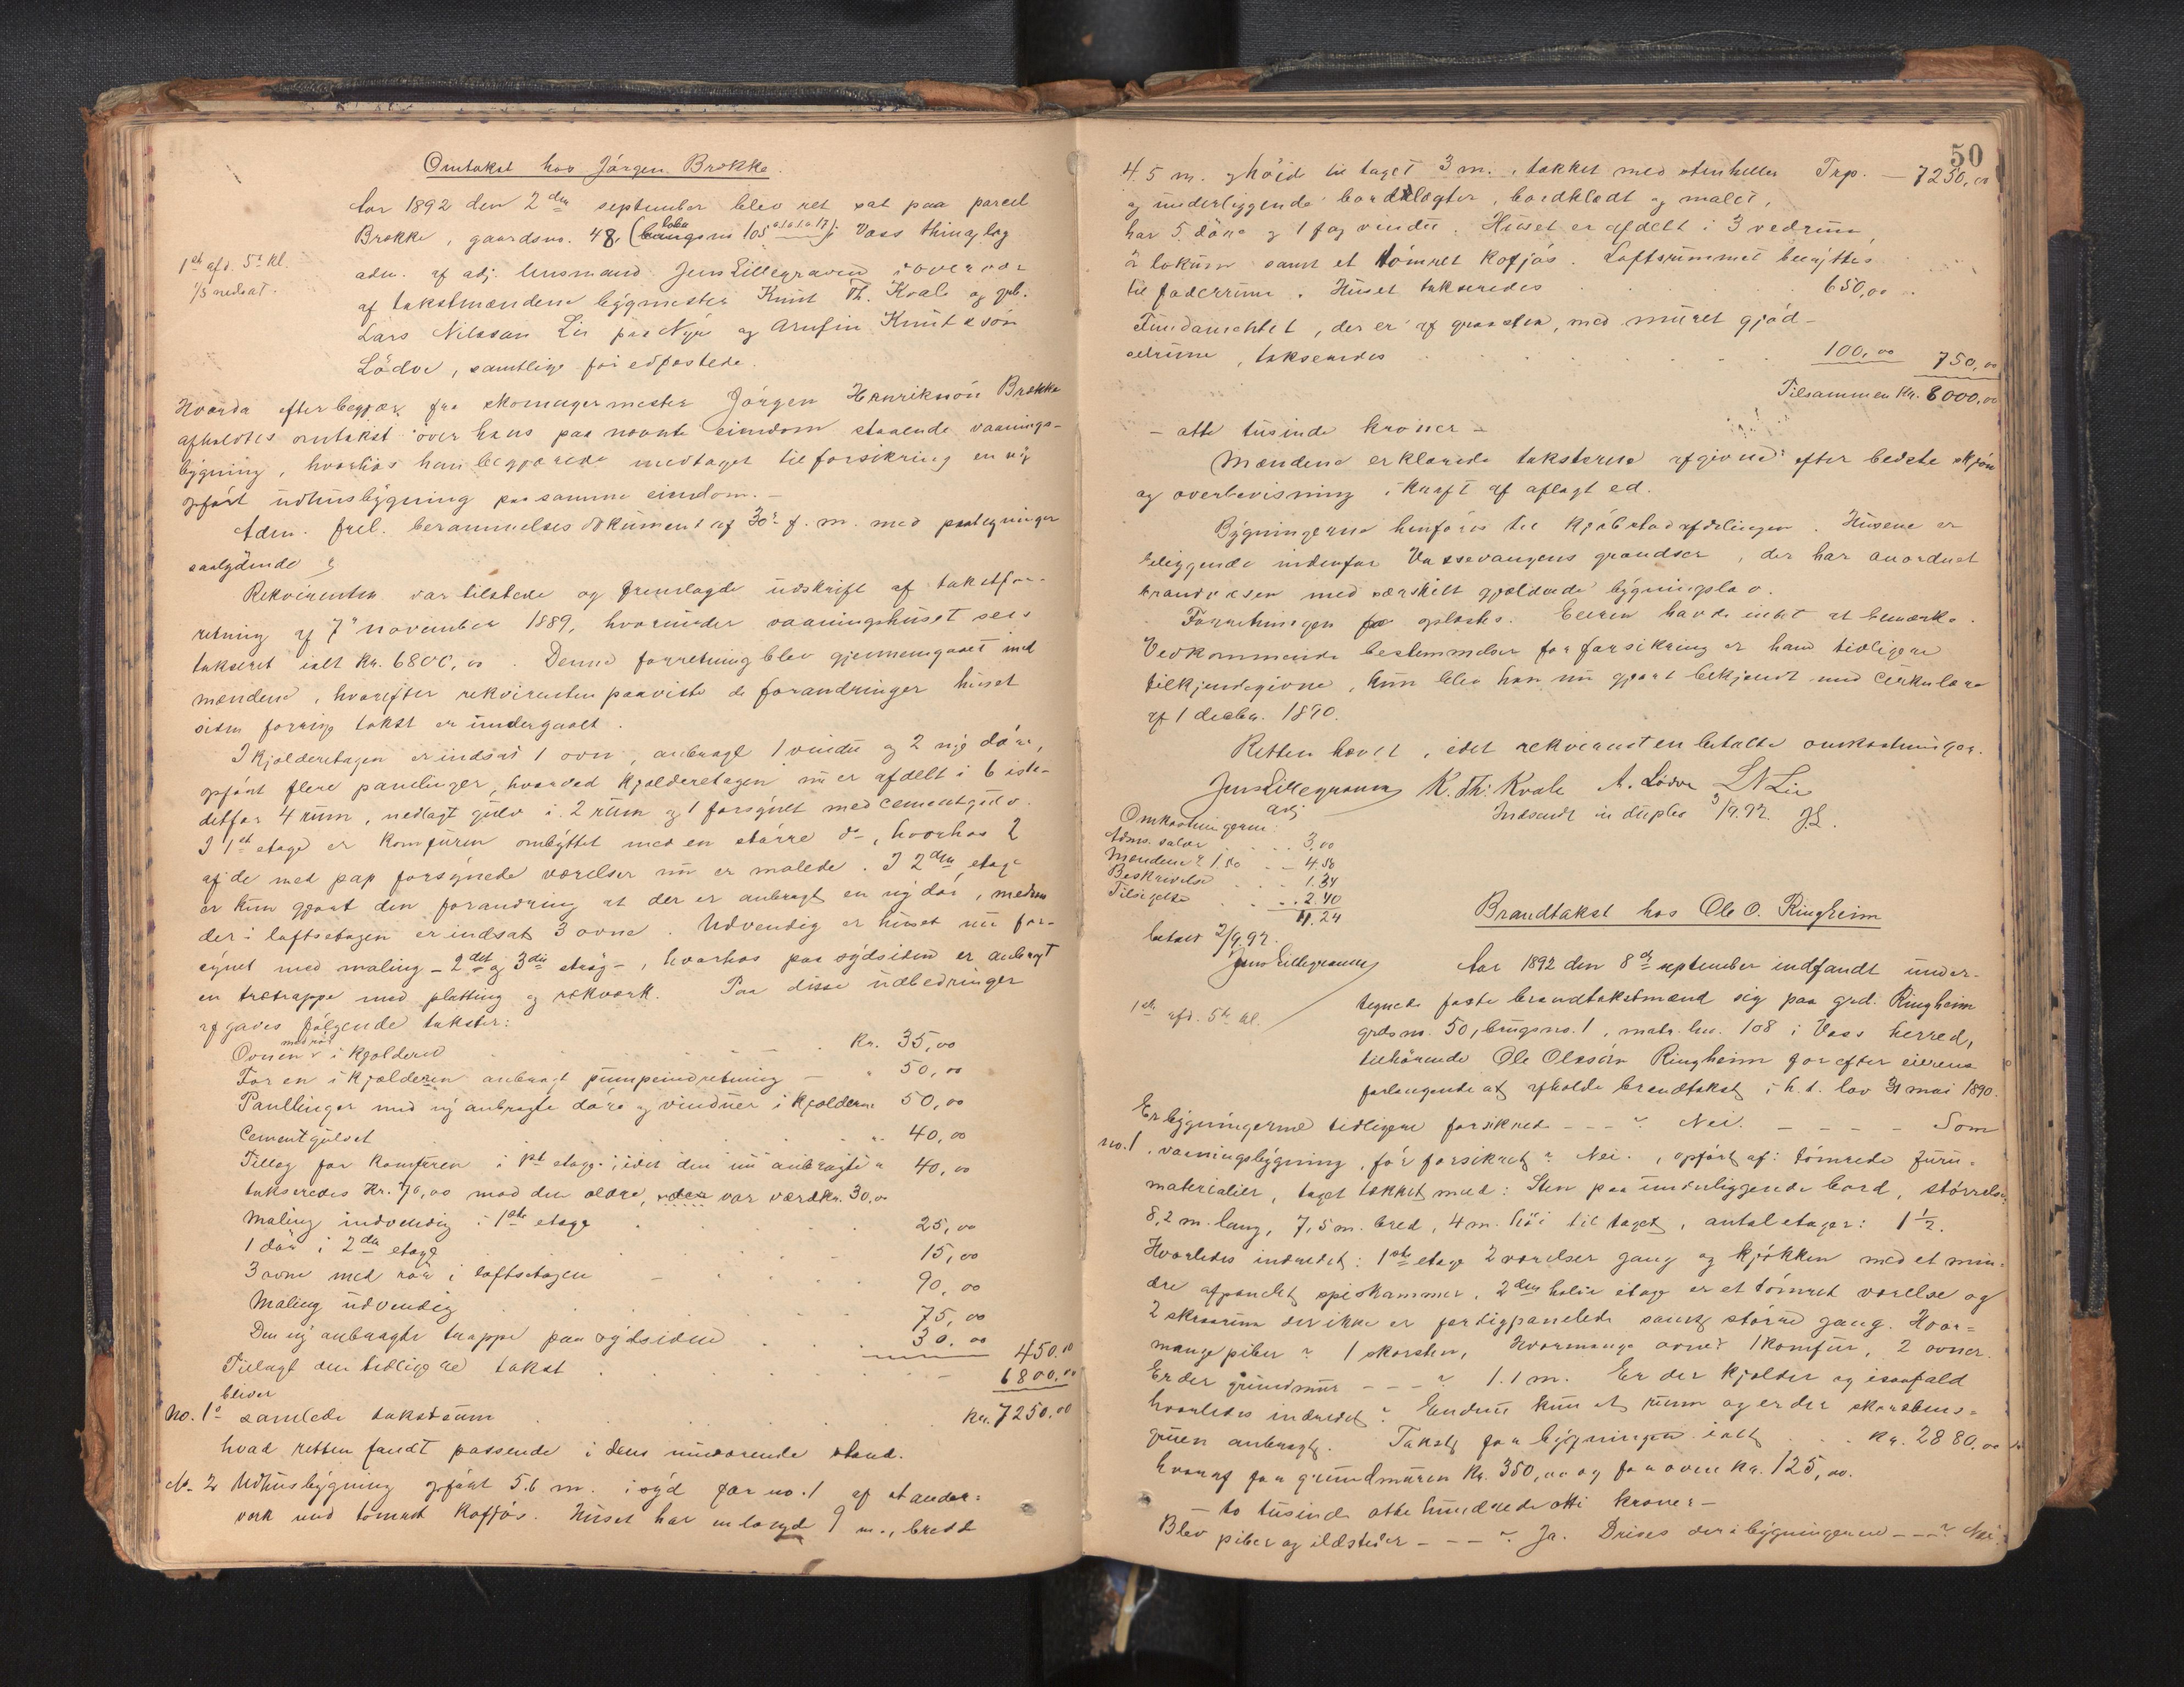 Omtakst hos Jörgen Brække.
Aar 1892 den 2den september blev ret sat paa parcel
Brække, gaardsno. 48, (brugsno 105) i Voss thinglag
1ste afd. 5te kl.
1/3 nedsat.
adm. af adj. lensmand Jens Lillegraven i overvær
af takstmændene bygmester Knut Th. Kvale og grb.
Lars Nilssøn Lie paa Nyre og Arnfin Knutssøn
Lödve, samtlige för edfæstede.
Hvorda efter begjær fra skomagermester Jörgen Henrikssön Brække
afholdtes omtakst over hans paa nævnte eiendom staaende vaanings-
bygning, hvorhos han begjærede medtaget til forsikring en ny
opfört udhusbygning paa samme eiendom. -
Adm. freml. berammelsesdokument af 30te f. m. med paategninger
saalydende
Rekvirenten var tilstede og fremlagde udskrift af takstfor-
retning af 7de november 1889, hvorunder vaaningshuset sees
takseret ialt kr. 6800,00. Denne forretning blev gjennemgaaet med
mændene, hvorefter rekvirenten paaviste de forandringer huset
siden forrige takst er undergaaet.
I kjælderetagen er indsat 1 ovn, anbragt 1 vindu og 2 nye döre,
opfört flere panelinger, hvorved kjælderetagen nu er afdelt i 6 iste-
detfor 4 rum, nedlagt gulv i 2 rum og 1 forsynet med cementgulv.
I 1ste etage er komfuren ombyttet med en större do, hvorhos 2
af de med pap forsynede værelser nu er malede. I 2den etage
er kun gjort den forandring at der er anbragt en ny dör, medens
der i loftsetagen er indsat 3 ovne. Udvendig er huset nu for-
synet med maling - 2det og 3die strög -, hvorhos paa sydsiden er anbragt
en trætrappe med platting og rækværk. Paa disse udbedringer
afgaves fölgende takster:
Ovnen med rör i kjælderen . . . Kr. 35,00
For en i kjælderen anbragt pumpeindretning - " 50,00
Panelinger med ny anbragte döre og vinduer i kjælderen 50,00
Cementgulvet . . . " 40,00
Tillæg for komfuren i 1ste etage, idet den nu anbragte " 40,00
takseredes Kr. 70,00 mod den ældre, der var værd kr. 30,00
Maling indvendig i 1ste etage . . . 25,00
1 dör i 2den etage . . . 15,00
3 ovne med rör i loftsetagen . . . 90,00
Maling udvendig . . . 75,00
Den ny anbragte trappe paa sydsiden . . . 30.00 450.00
Tillagt den tidligere takst . . . 6800,00
bliver
No. 1s samlede takstsum . . . Kr. 7250,00
hvad retten fandt passende i dens nuværende stand.
No. 2 Udhusbygning opfört 5.6 m. i syd for no. 1 af stander-
værk med tömret kofjös. Huset har en længde 9 m., bredde
50
4 5 m. og höide til taget 3 m., tækket med stenheller Trp. - 7250,00
og underliggende bordslagter, bordklædt og malet,
har 5 döre og 1 fag vindu. Huset er afdelt i 3 vedrum,
2 lokum samt et tömret kofjös. Loftsrummet benyttes
til foderrum. Huset takseredes . . . 650,00
Fundamentet, der er af graasten, med muret gjöd-
selrum, takseredes . . . 100,00 750,00
Tilsammen Kr. 8000,00
- otte tusinde kroner -
Mændene erklærede taksterne afgivne efter bedste skjön
og overbevisning i kraft af aflagt ed.
Bygningerne henföres til kjöbstadafdelingen. Husene er
beliggende indenfor Vossevangens grændser, der har anordnet
brandvæsen med særskilt gjældende bygningslov.
Forretningen oplæstes. Eieren havde intet at bemærke.
Vedkommende bestemmelser for forsikring er ham tidligere
tilkjendegivne, kun blev han nu gjort bekjendt med cirkulære
af 1 decbr. 1890.
Retten hævet, idet rekvirenten betalte omkostninger.
Jens Lillegraven K. Th. Kvale A. Lödve L N Lie
adj
Indsendt in duplo 3/9.92. JL.
Omkostningerne:
Adms. salær . . . 3,00
Mændene à 1.50 . . 4.50
Beskrivelse . . . 1.34
Tilsigelse . . . 2.40
11.24
betalt 2/9.92.
Jens Lillegraven
Brandtakst hos Ole O. Ringheim
Aar 1892 den 8de september indfandt under-
1ste afd. 5te kl.
tegnede faste brandtakstmænd sig paa grd. Ringheim
grdsno. 50, brugsno. 1, matr. lno. 108 i Voss herred,
tilhörende Ole Olessön Ringheim for efter eierens
forlangende at afholde brandtakst i h. t. lov 31 mai 1890.
Er bygningerne tidligere forsikret - - - ? Nei. - - - - Som
no. 1, vaaningsbygning, för forsikret? Nei., opfört af: tömrede furu-
materialier, taget tækket med: Sten paa underliggende bord, störrelse:
8,2 m. lang, 7,5 m. bred, 4 m. höi til taget, antal etager: 1 1/2.
Hvorledes indredet: 1ste etage 2 værelser gang og kjökken med et min-
dre afpanelet spiskammer, 2den halve etage er et tömret værelse og
2 skraarum der ikke er færdigpanelede samt större gang. Hvor-
mange piber? 1 skorsten, Hvormange ovne? 1 komfur, 2 ovner.
Er der grundmur - - - ? 1.1 m. Er der kjelder og isaafald
hvorledes indredet? Endnu kun et rum og er der skorstens-
gruen anbragt. Takst for bygningen ialt . . Kr. 2880,00
hvoraf for grundmuren Kr. 350,00 og for ovne Kr. 125,00.
- to tusinde otte hundrede otti kroner -
Blev piber og ildsteder - - - ? Ja. Drives der i bygningerne - - - ? Nei.